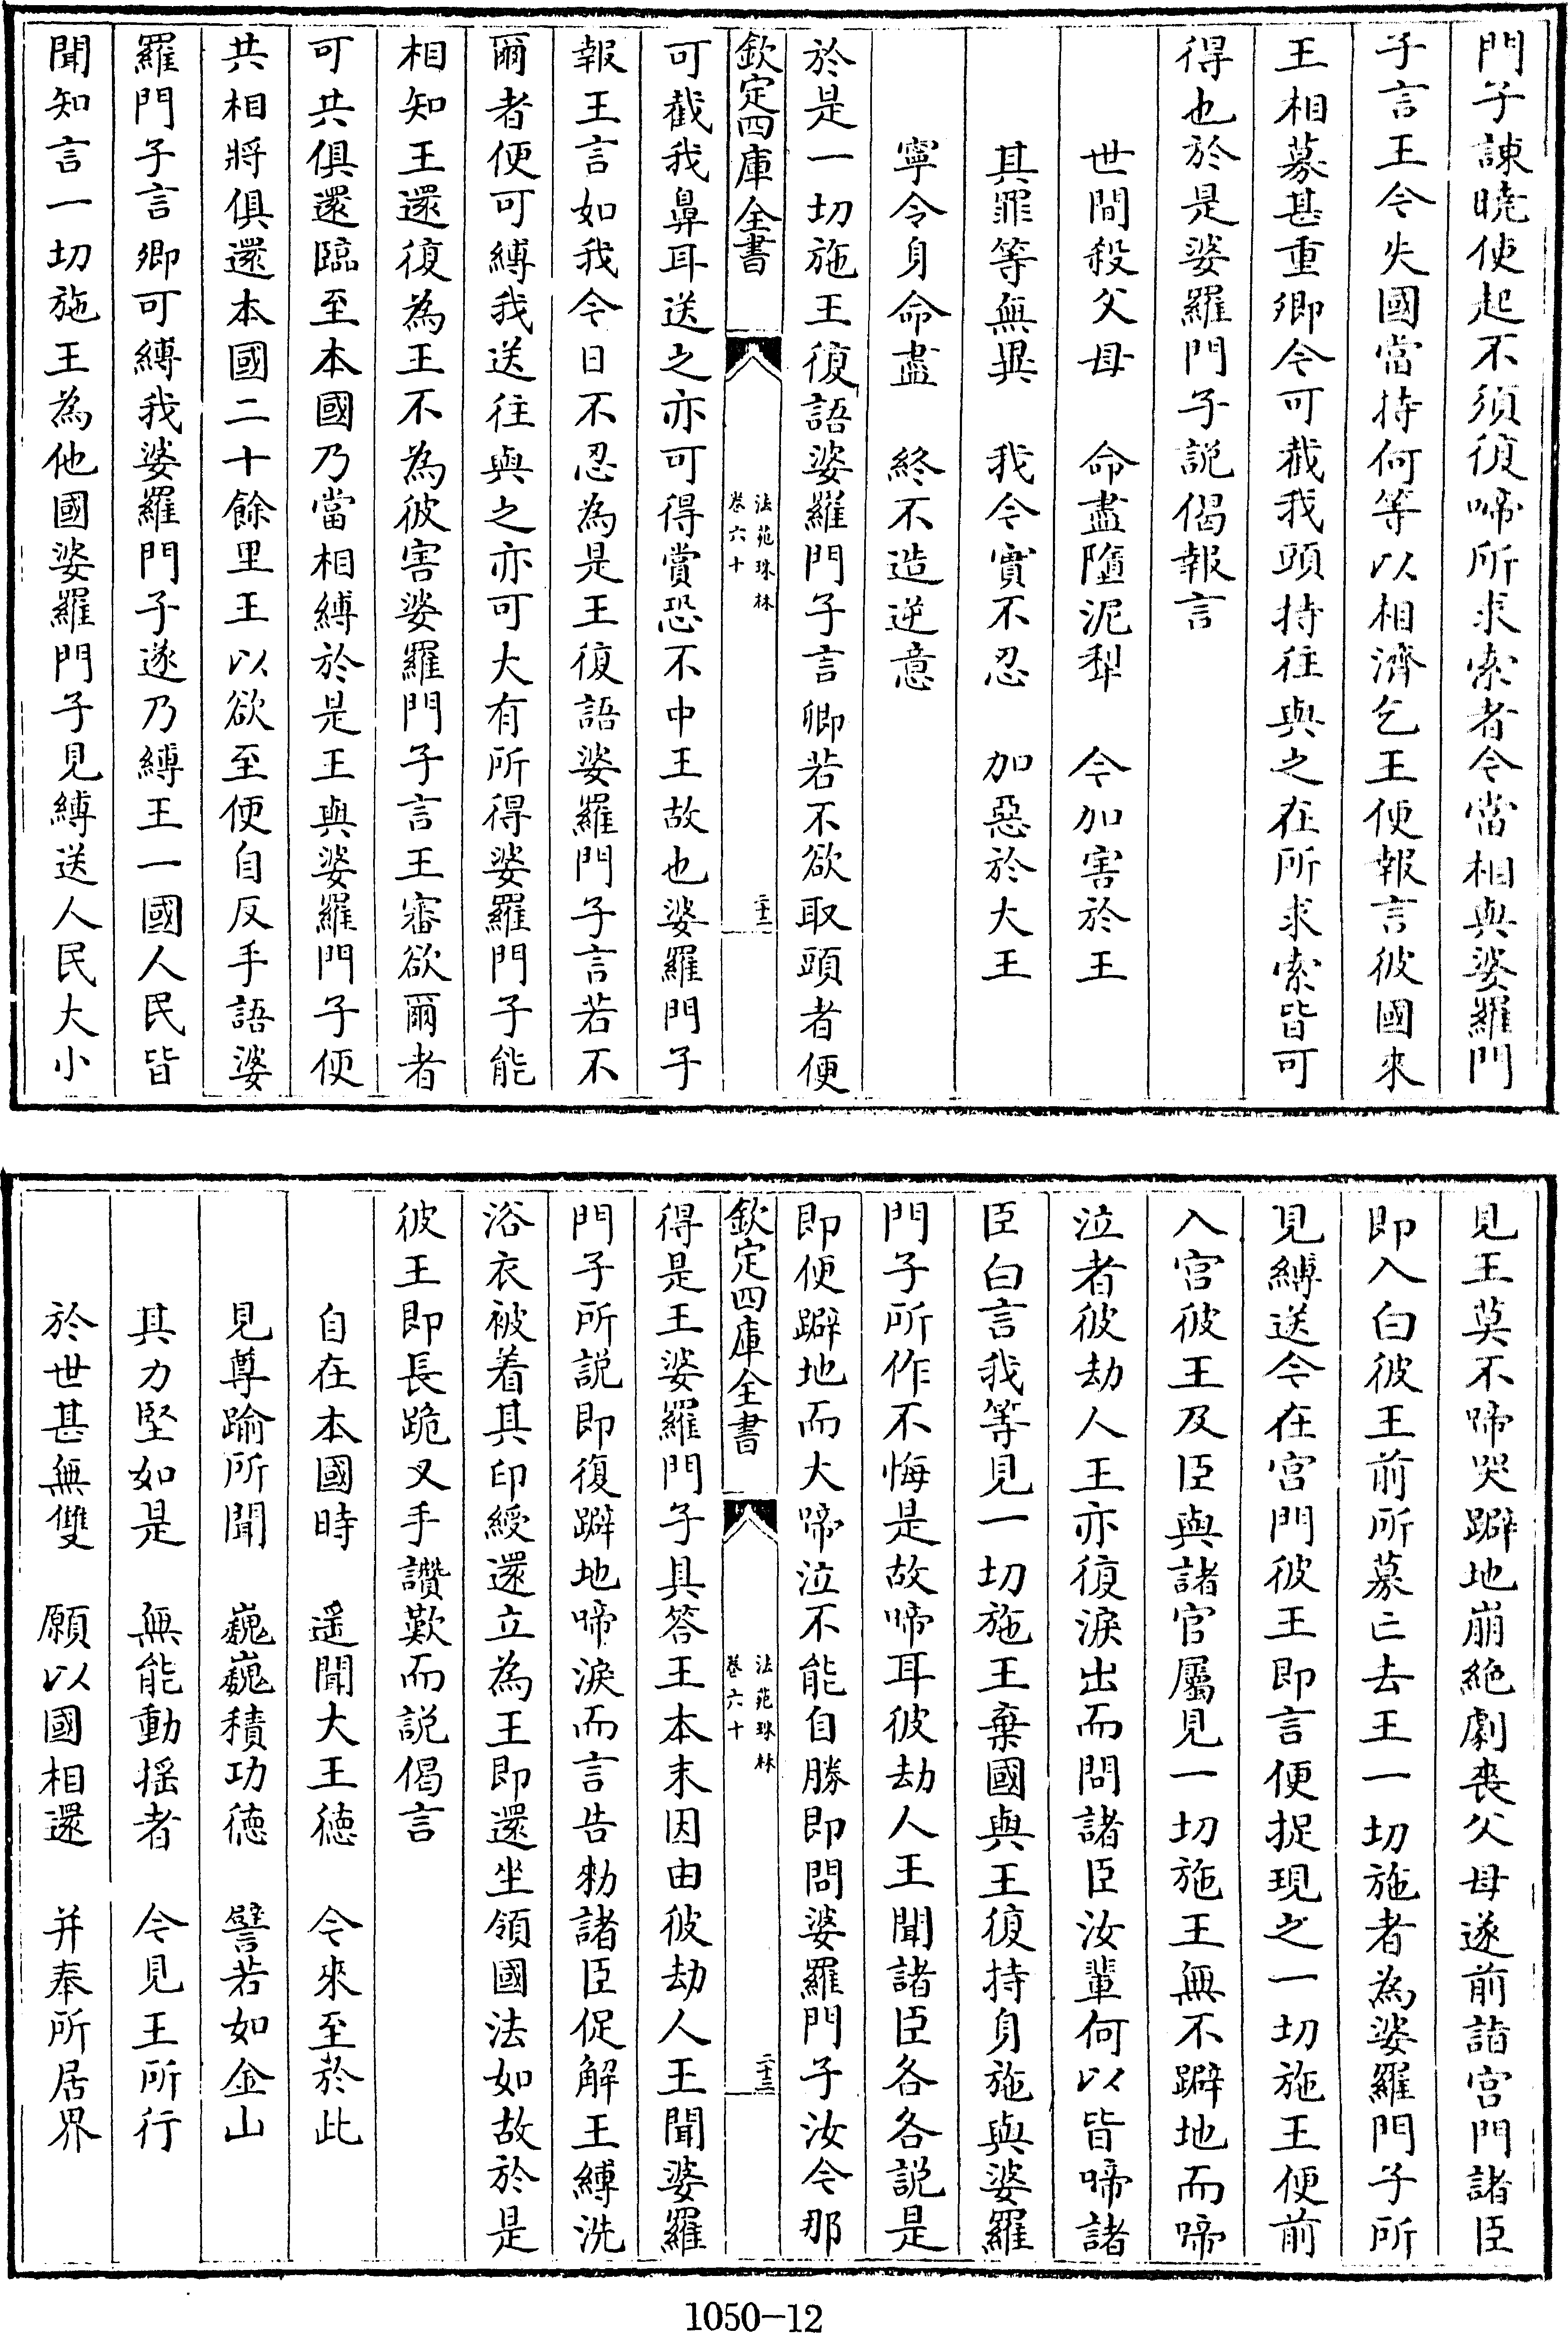 門子諌曉使起不須復啼所求索者今當相與婆羅門
子言王今失國當持何等以相濟乞王便報言彼國來
王相募甚重卿今可截我頭持往與之在所求索皆可
得也於是婆羅門子説偈報言
世間殺父母　命盡墮泥犁　今加害於王
其罪等無異　我今實不忍　加惡於大王
寧令身命盡　終不造逆意
於是一切施王復語婆羅門子言卿若不欲取頭者便
欽定四庫全書
法苑珠林
卷六十
二十二
可截我鼻耳送之亦可得賞恐不中王故也婆羅門子
報王言如我今日不忍為是王復語婆羅門子言若不
爾者便可縛我送往與之亦可大有所得婆羅門子能
相知王還復為王不為彼害婆羅門子言王審欲爾者
可共俱還臨至本國乃當相縛於是王與婆羅門子便
共相將俱還本國二十餘里王以欲至便自反手語婆
羅門子言卿可縛我婆羅門子遂乃縛王一國人民皆
聞知言一切施王為他國婆羅門子見縛送人民大小
見王莫不啼哭躃地崩絶劇喪父母遂前詣宫門諸臣
即入白彼王前所募亡去王一切施者為婆羅門子所
見縛送今在宫門彼王即言便捉現之一切施王便前
入宫彼王及臣與諸官屬見一切施王無不躃地而啼
泣者彼劫人王亦復淚出而問諸臣汝輩何以皆啼諸
臣白言我等見一切施王棄國與王復持身施與婆羅
門子所作不悔是故啼耳彼劫人王聞諸臣各各説是
即便躃地而大啼泣不能自勝即問婆羅門子汝今那
欽定四庫全書
法苑珠林
卷六十
二十三
得是王婆羅門子具答王本末因由彼劫人王聞婆羅
門子所説即復躃地啼淚而言告勑諸臣促解王縛洗
浴衣被着其印綬還立為王即還坐領國法如故於是
彼王即長跪叉手讚歎而説偈言
自在本國時　遥聞大王徳　今來至於此
見尊踰所聞　巍巍積功徳　譬若如金山
其力堅如是　無能動揺者　今見王所行
於世甚無雙　願以國相還　并奉所居界
1050-12